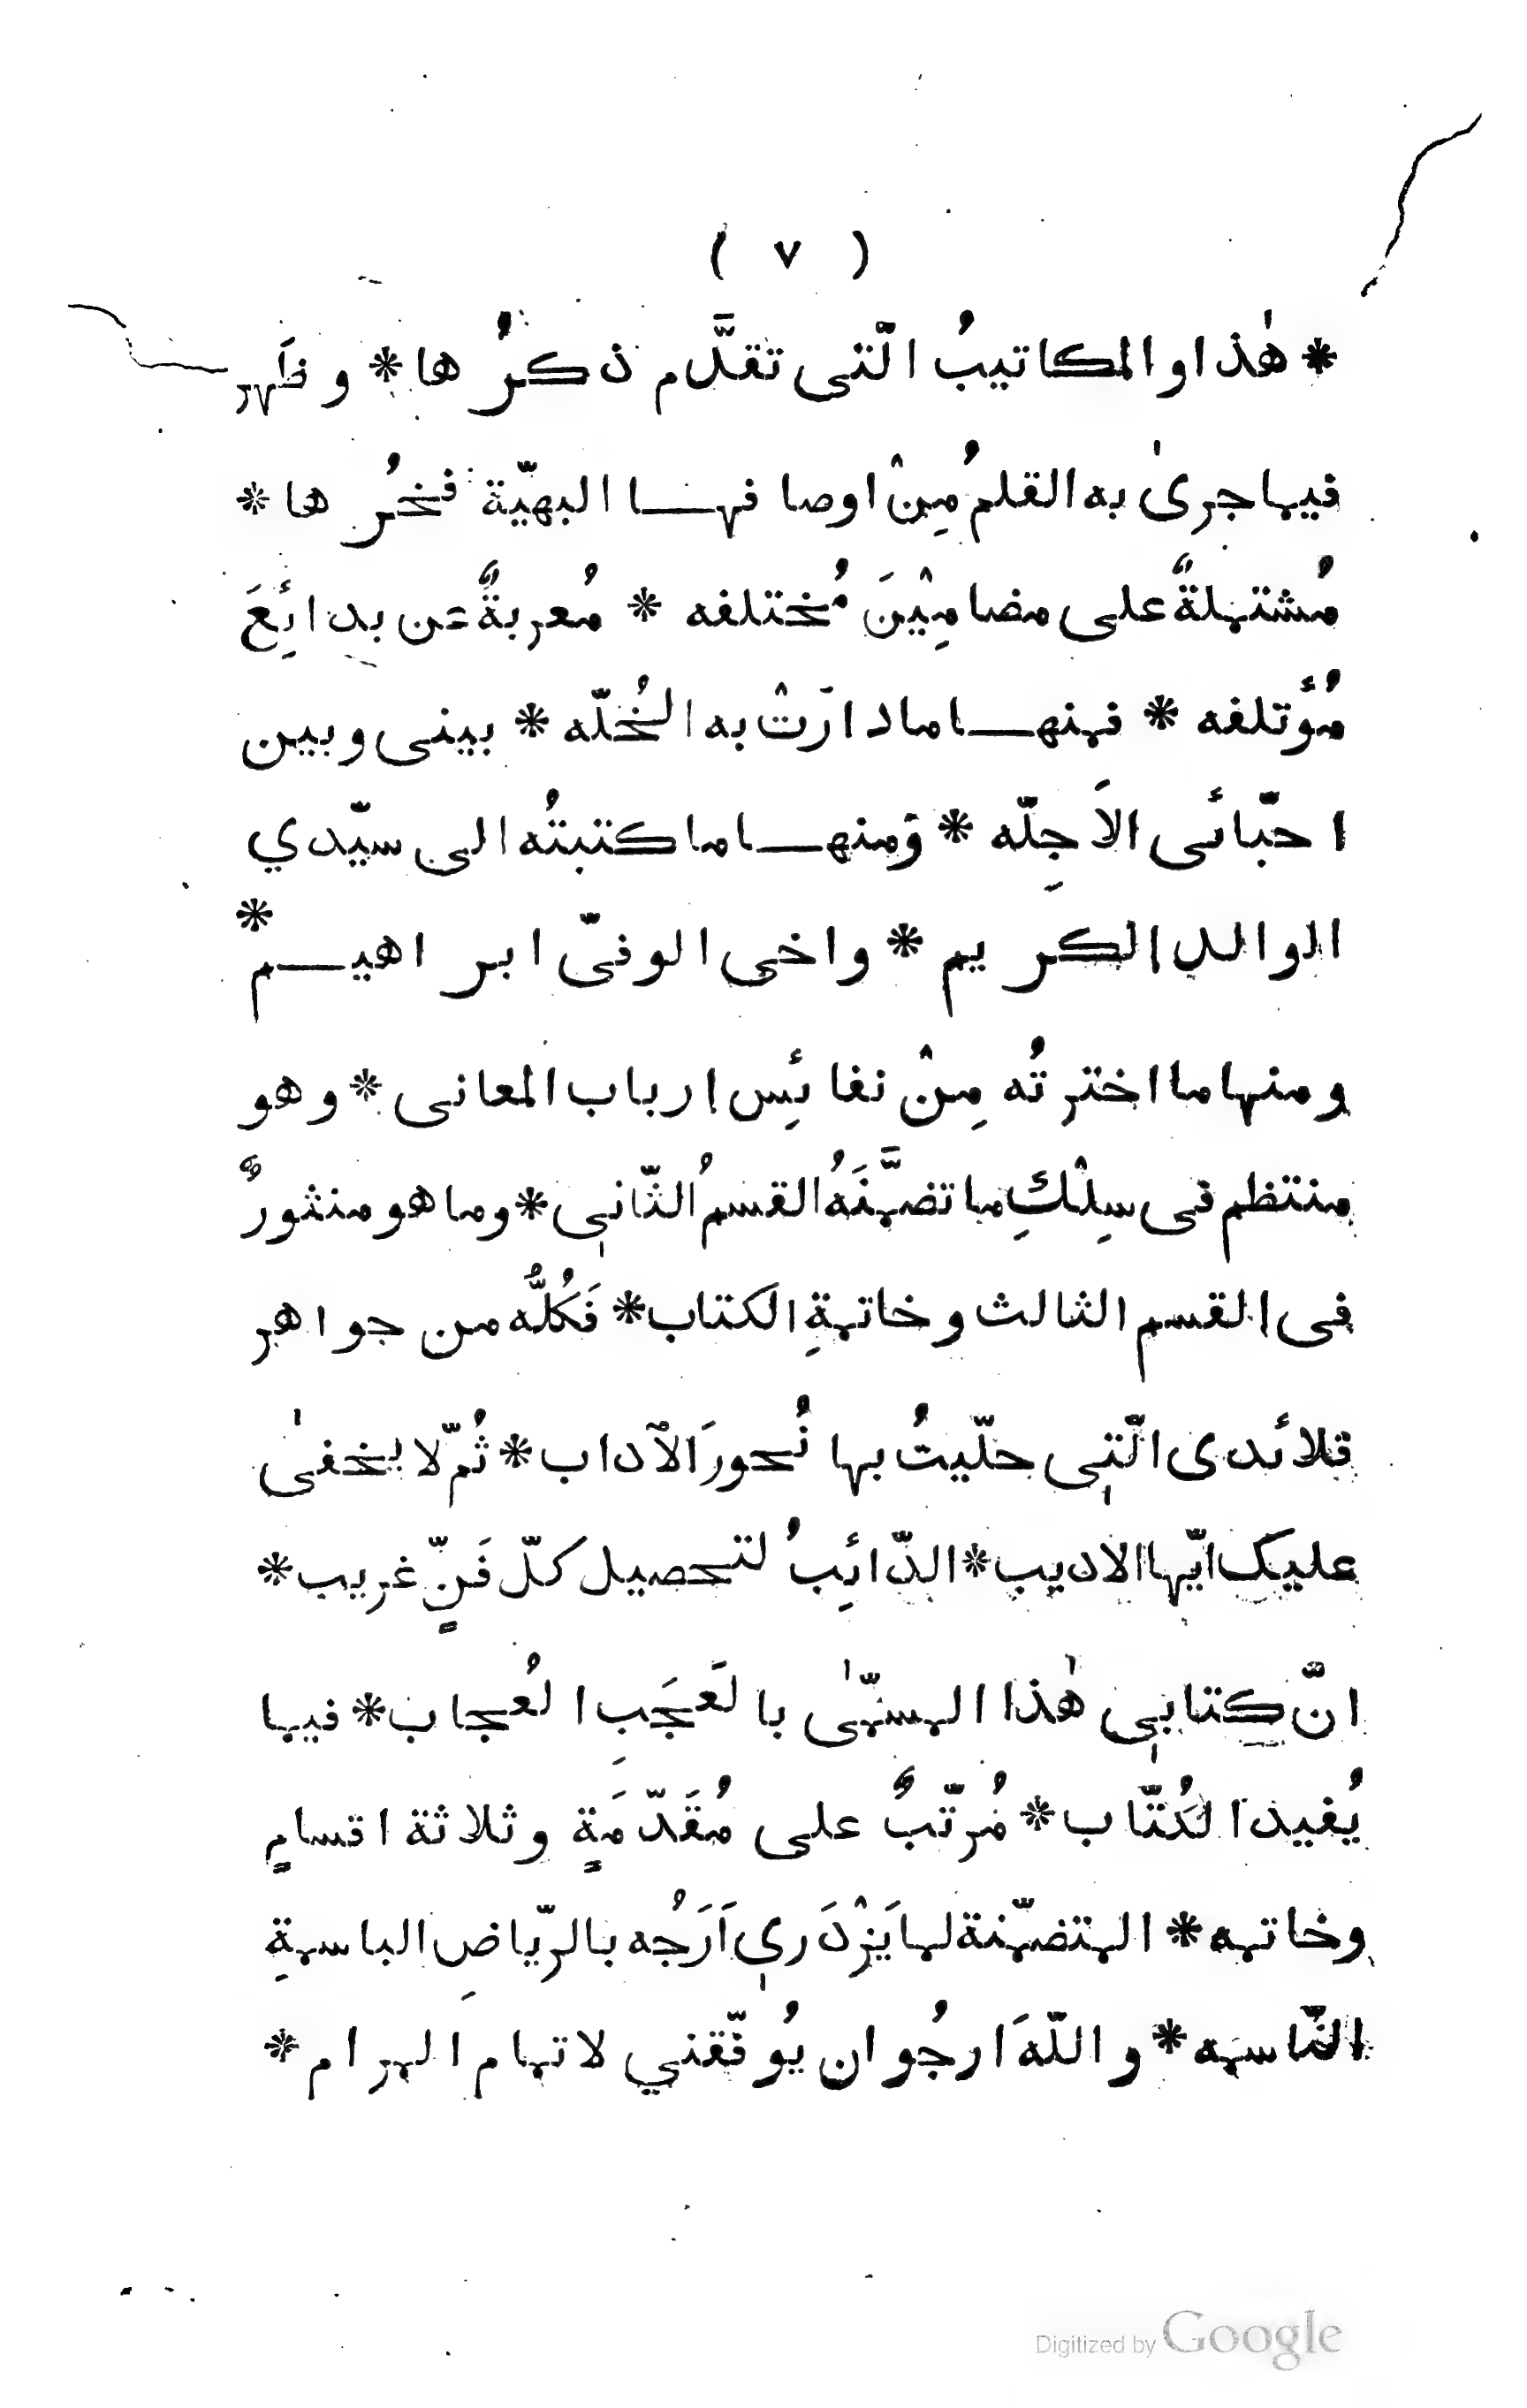 ( ٧ )
* هٰذا والمكاتيبُ الّتى تقدَّم ذكرُها * و ظَهر
فيما جرىٰ به القلمُ مِنْ اوصافهـا البهيّة فخرُها *
مُشتملةٌ على مضامِيْنَ مُختلفه * مُعربةٌ عن بدائِعَ
مُؤتلفه * فمنهـا ما دارَتْ به الخُلّه * بينى و بين
احبّائى الاَجِلّه * وَمنهـا ما كتبتُه الى سيّدي
الوالد الكريم * واخى الوفىّ ابراهيـم *
و منها ما اخترتُه مِنْ نفائِس ارباب المعانى * و هو
منتظم فى سِلْكِ ما تضمَّنَهُ القسمُ الثّانى * و ما هو منثورٌ
فى القسم الثالث و خاتمةِ الكتاب * فَكُلُّه من جواهر
قلائدى الّتى حلّيتُ بها نُحورَ الآداب * ثُمّ لا يخفىٰ
عليك ايّها الاديب * الدّائِبُ لتحصيل كلّ فَنٍّ غريب *
انّ كتابى هٰذا المسمّىٰ بالعَجَبِ العُجاب * فيما
يُفيد الكُتّاب * مُرتّبٌ على مُقَدّمَةٍ و ثلاثة اقسامٍ
وخاتمه * المتضمّنة لما يَزْدَرى اَرَجُه بالرّياضِ الباسمةِ
النّاسمه * و اللّهَ ارجُو ان يُوفّقني لاتمام المرام *
Digitized by Google